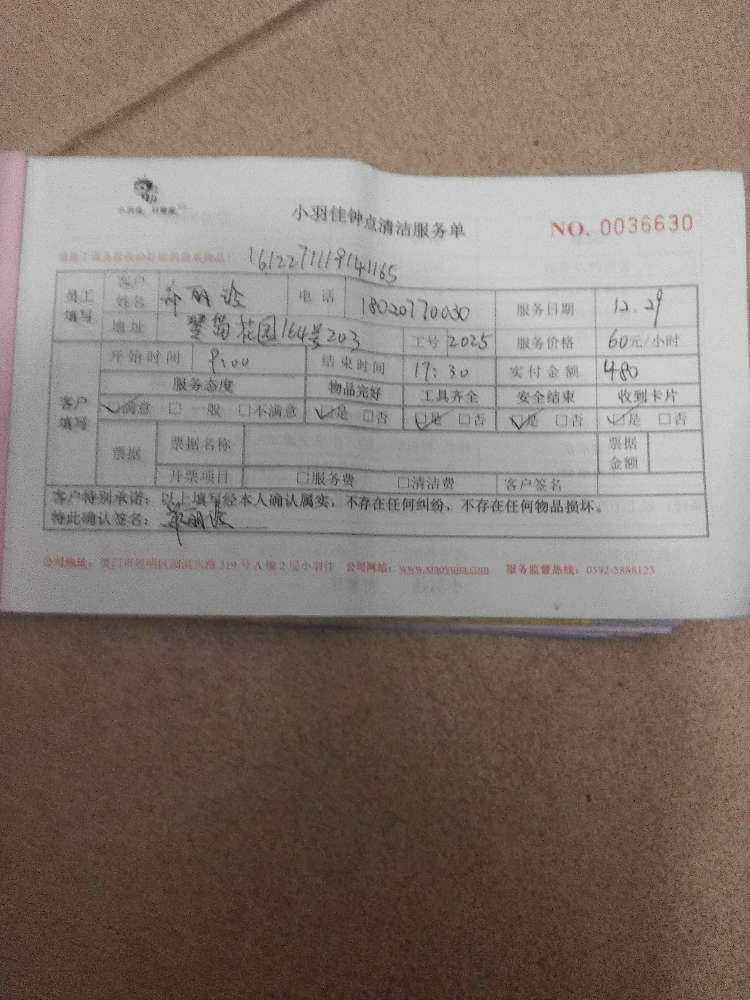 小羽佳钟点清洁服务单
NO. 0036630
1612271119141165
员工填写 客户姓名 电话 18020770030 服务日期 12.29
地址 花园164号203 工号 2025 服务价格 60元/小时
开始时间 9:00 结束时间 17:30 实付金额 480
客户填写 服务态度 物品完好 工具齐全 安全结束 收到卡片
☑满意 □一般 □不满意 ☑是 □否 ☑是 □否 ☑是 □否 ☑是 □否
票据 票据名称 票据金额
开票项目 □服务费 □清洁费 客户签名
客户特别承诺：以上填写经本人确认属实，不存在任何纠纷，不存在任何物品损坏。
特此确认签名：
公司地址： 319号A栋2层小羽佳 公司网站： 服务监督热线：